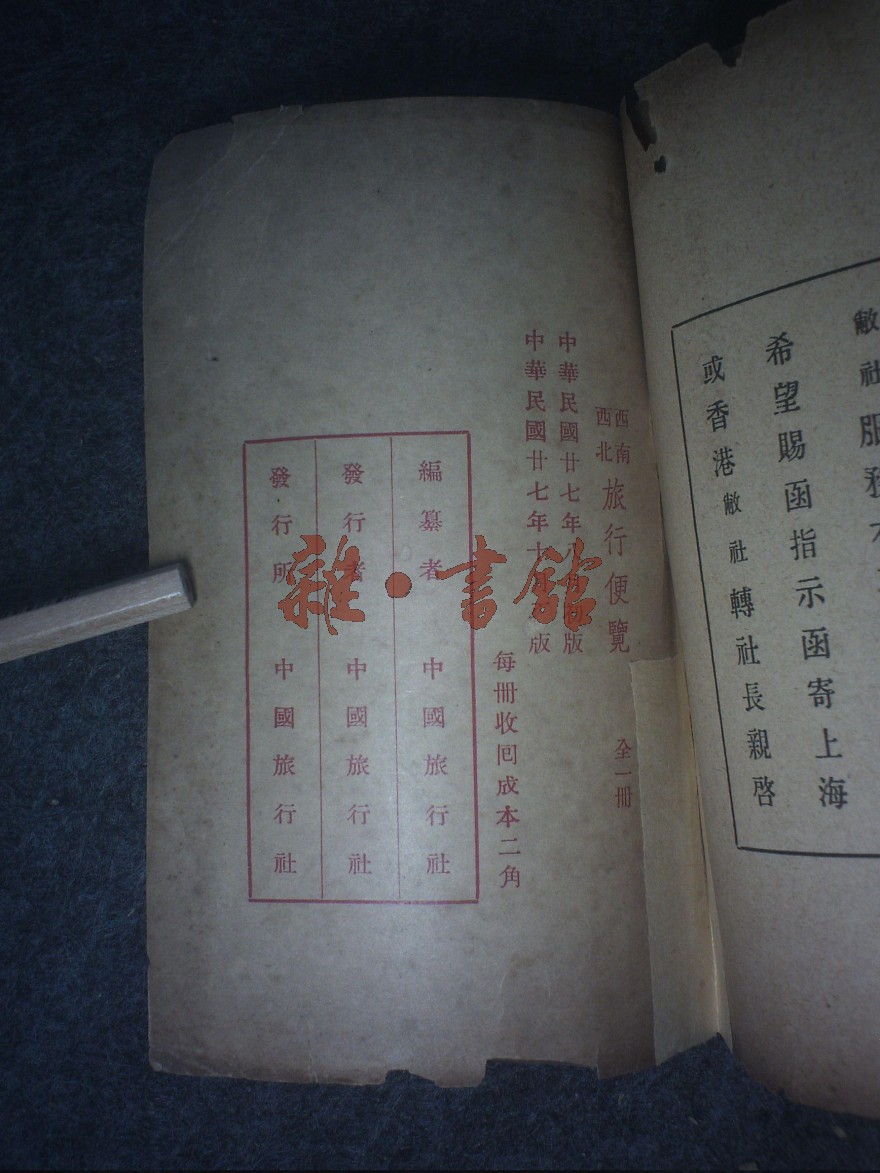 敝社服務
希望賜函指示函寄上海
或香港敝社轉社長親啓
西南西北旅行便覽 全一冊
中華民國廿七年八月 版
中華民國廿七年十 版
每冊收囘成本二角
編纂者 中國旅行社
發行者 中國旅行社
發行所 中國旅行社
雜·書館